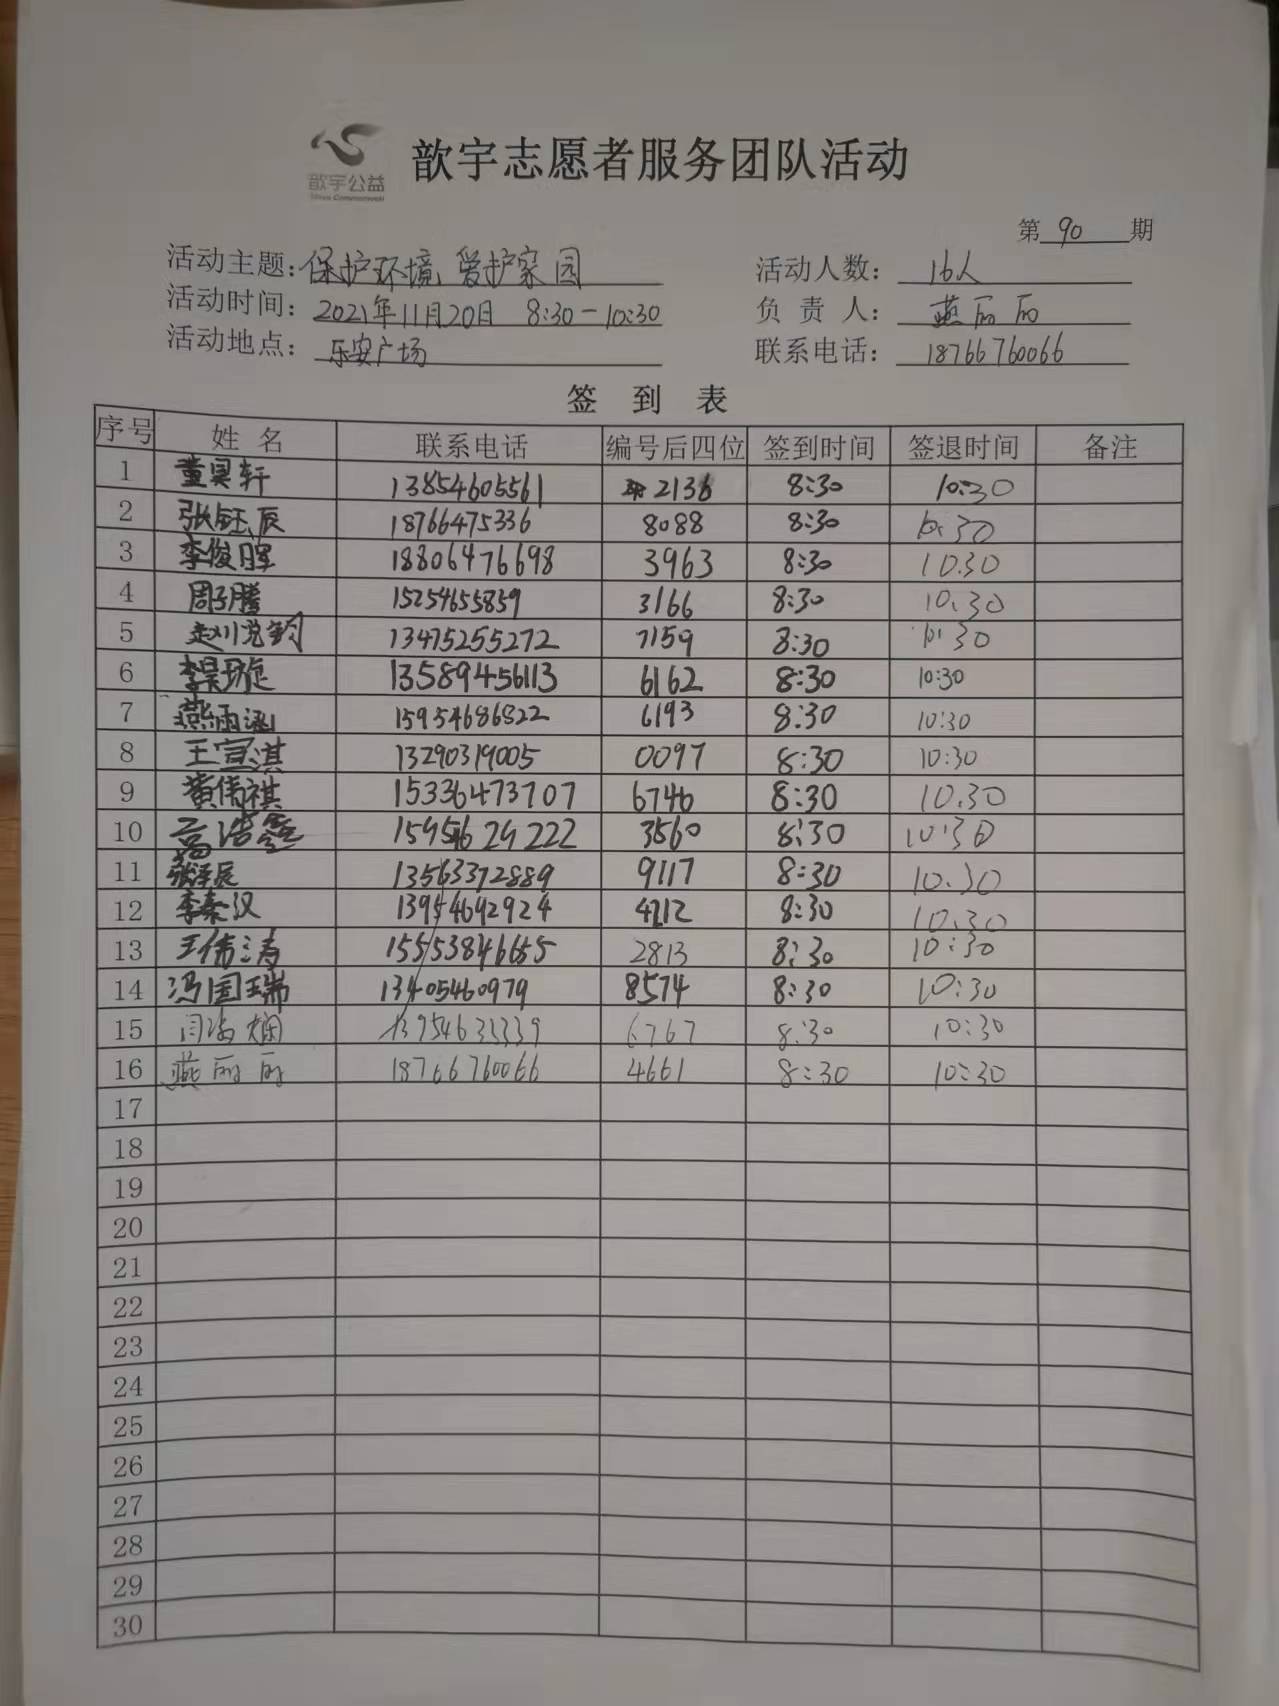 歆宇公益
歆宇志愿者服务团队活动
第 90 期
活动主题：保护环境、爱护家园 活动人数： 16人
活动时间：2021年11月20日 8:30-10:30 负 责 人： 燕丽丽
活动地点： 乐安广场 联系电话： 18766760066
签 到 表
序号 姓 名 联系电话 编号后四位 签到时间 签退时间 备注
1 董昊轩 13854605561 2136 8:30 10:30
2 张钰辰 18766475336 8088 8:30 10:30
3 李俊晖 18806476698 3963 8:30 10.30
4 周子腾 15254655859 3166 8:30 10.30
5 13475255272 7159 8:30 10:30
6 李昊璇 13589456113 6162 8:30 10:30
7 燕雨涵 15954686822 6193 8:30 10:30
8 王宣淇 13290319005 0097 8:30 10:30
9 黄伟祺 15336473707 6746 8:30 10.30
10 高浩鑫 3560 8:30 10:30
11 张泽辰 13563372889 9117 8:30 10.30
12 李秦汉 13954692924 4212 8:30 10.30
13 王伟涛 2813 8:30 10:30
14 冯国瑞 13405460979 8574 8:30 10:30
15 6767 8:30 10:30
16 燕丽丽 18766760066 4661 8:30 10:30
17
18
19
20
21
22
23
24
25
26
27
28
29
30